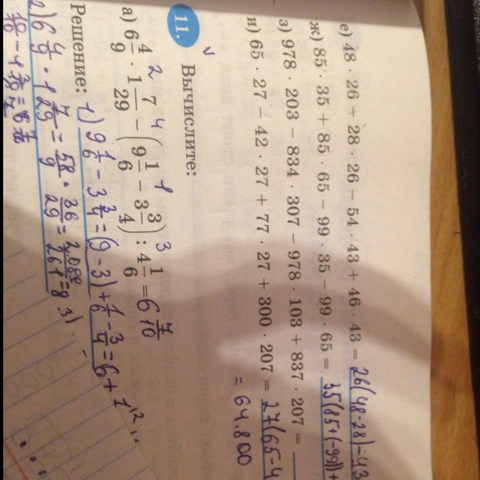 е) 48 · 26 + 28 · 26 − 54 · 43 + 46 · 43 = 26(48-28)-43
ж) 85 · 35 + 85 · 65 − 99 · 35 − 99 · 65 = 35(85+(-99))+
з) 978 · 203 − 834 · 307 − 978 · 103 + 837 · 207 =
и) 65 · 27 − 42 · 27 + 77 · 27 + 300 · 207 = 27(65-4
= 64.800
11. Вычислите:
а) 6 4/9 · 1 7/29 − (9 1/6 − 3 3/4) : 4 1/6 = 6 7/10
Решение: 1) 9 1/6 - 3 3/4 = (9-3) + 1/6 - 3/4 = 6 +
2) 6 4/9 · 1 7/29 = 58/9 · 36/29 = 2088/261 = 8 3)